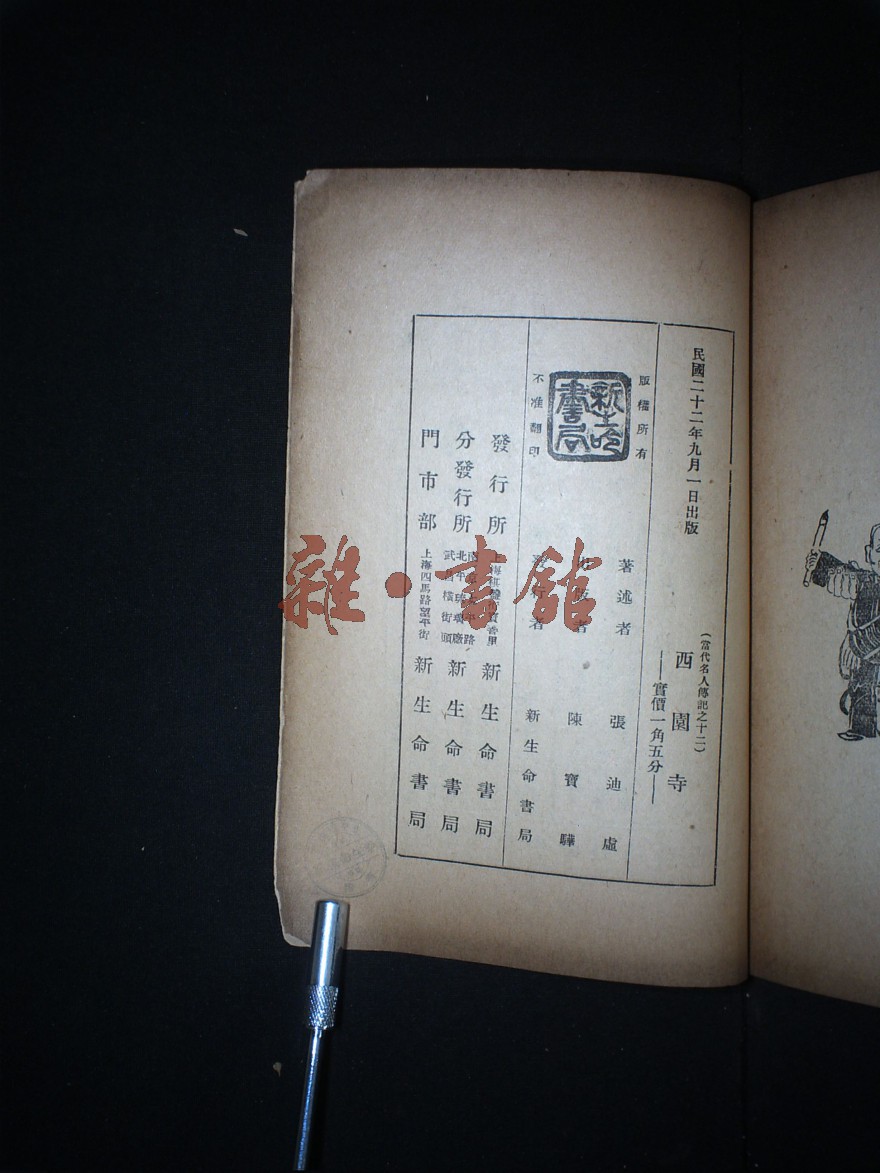 民國二十二年九月一日出版
(當代名人傳記之十二)
西園寺
——實價一角五分——
版權所有
新生命書局
不准翻印
著述者 張迪虛
陳寶驊
發行者 新生命書局
發行所 上海棋盤街寶善里 新生命書局
分發行所 新生命書局
南京太平路
北平琉璃廠
武昌橫街頭
門市部 上海四馬路望平街 新生命書局
雜·書館